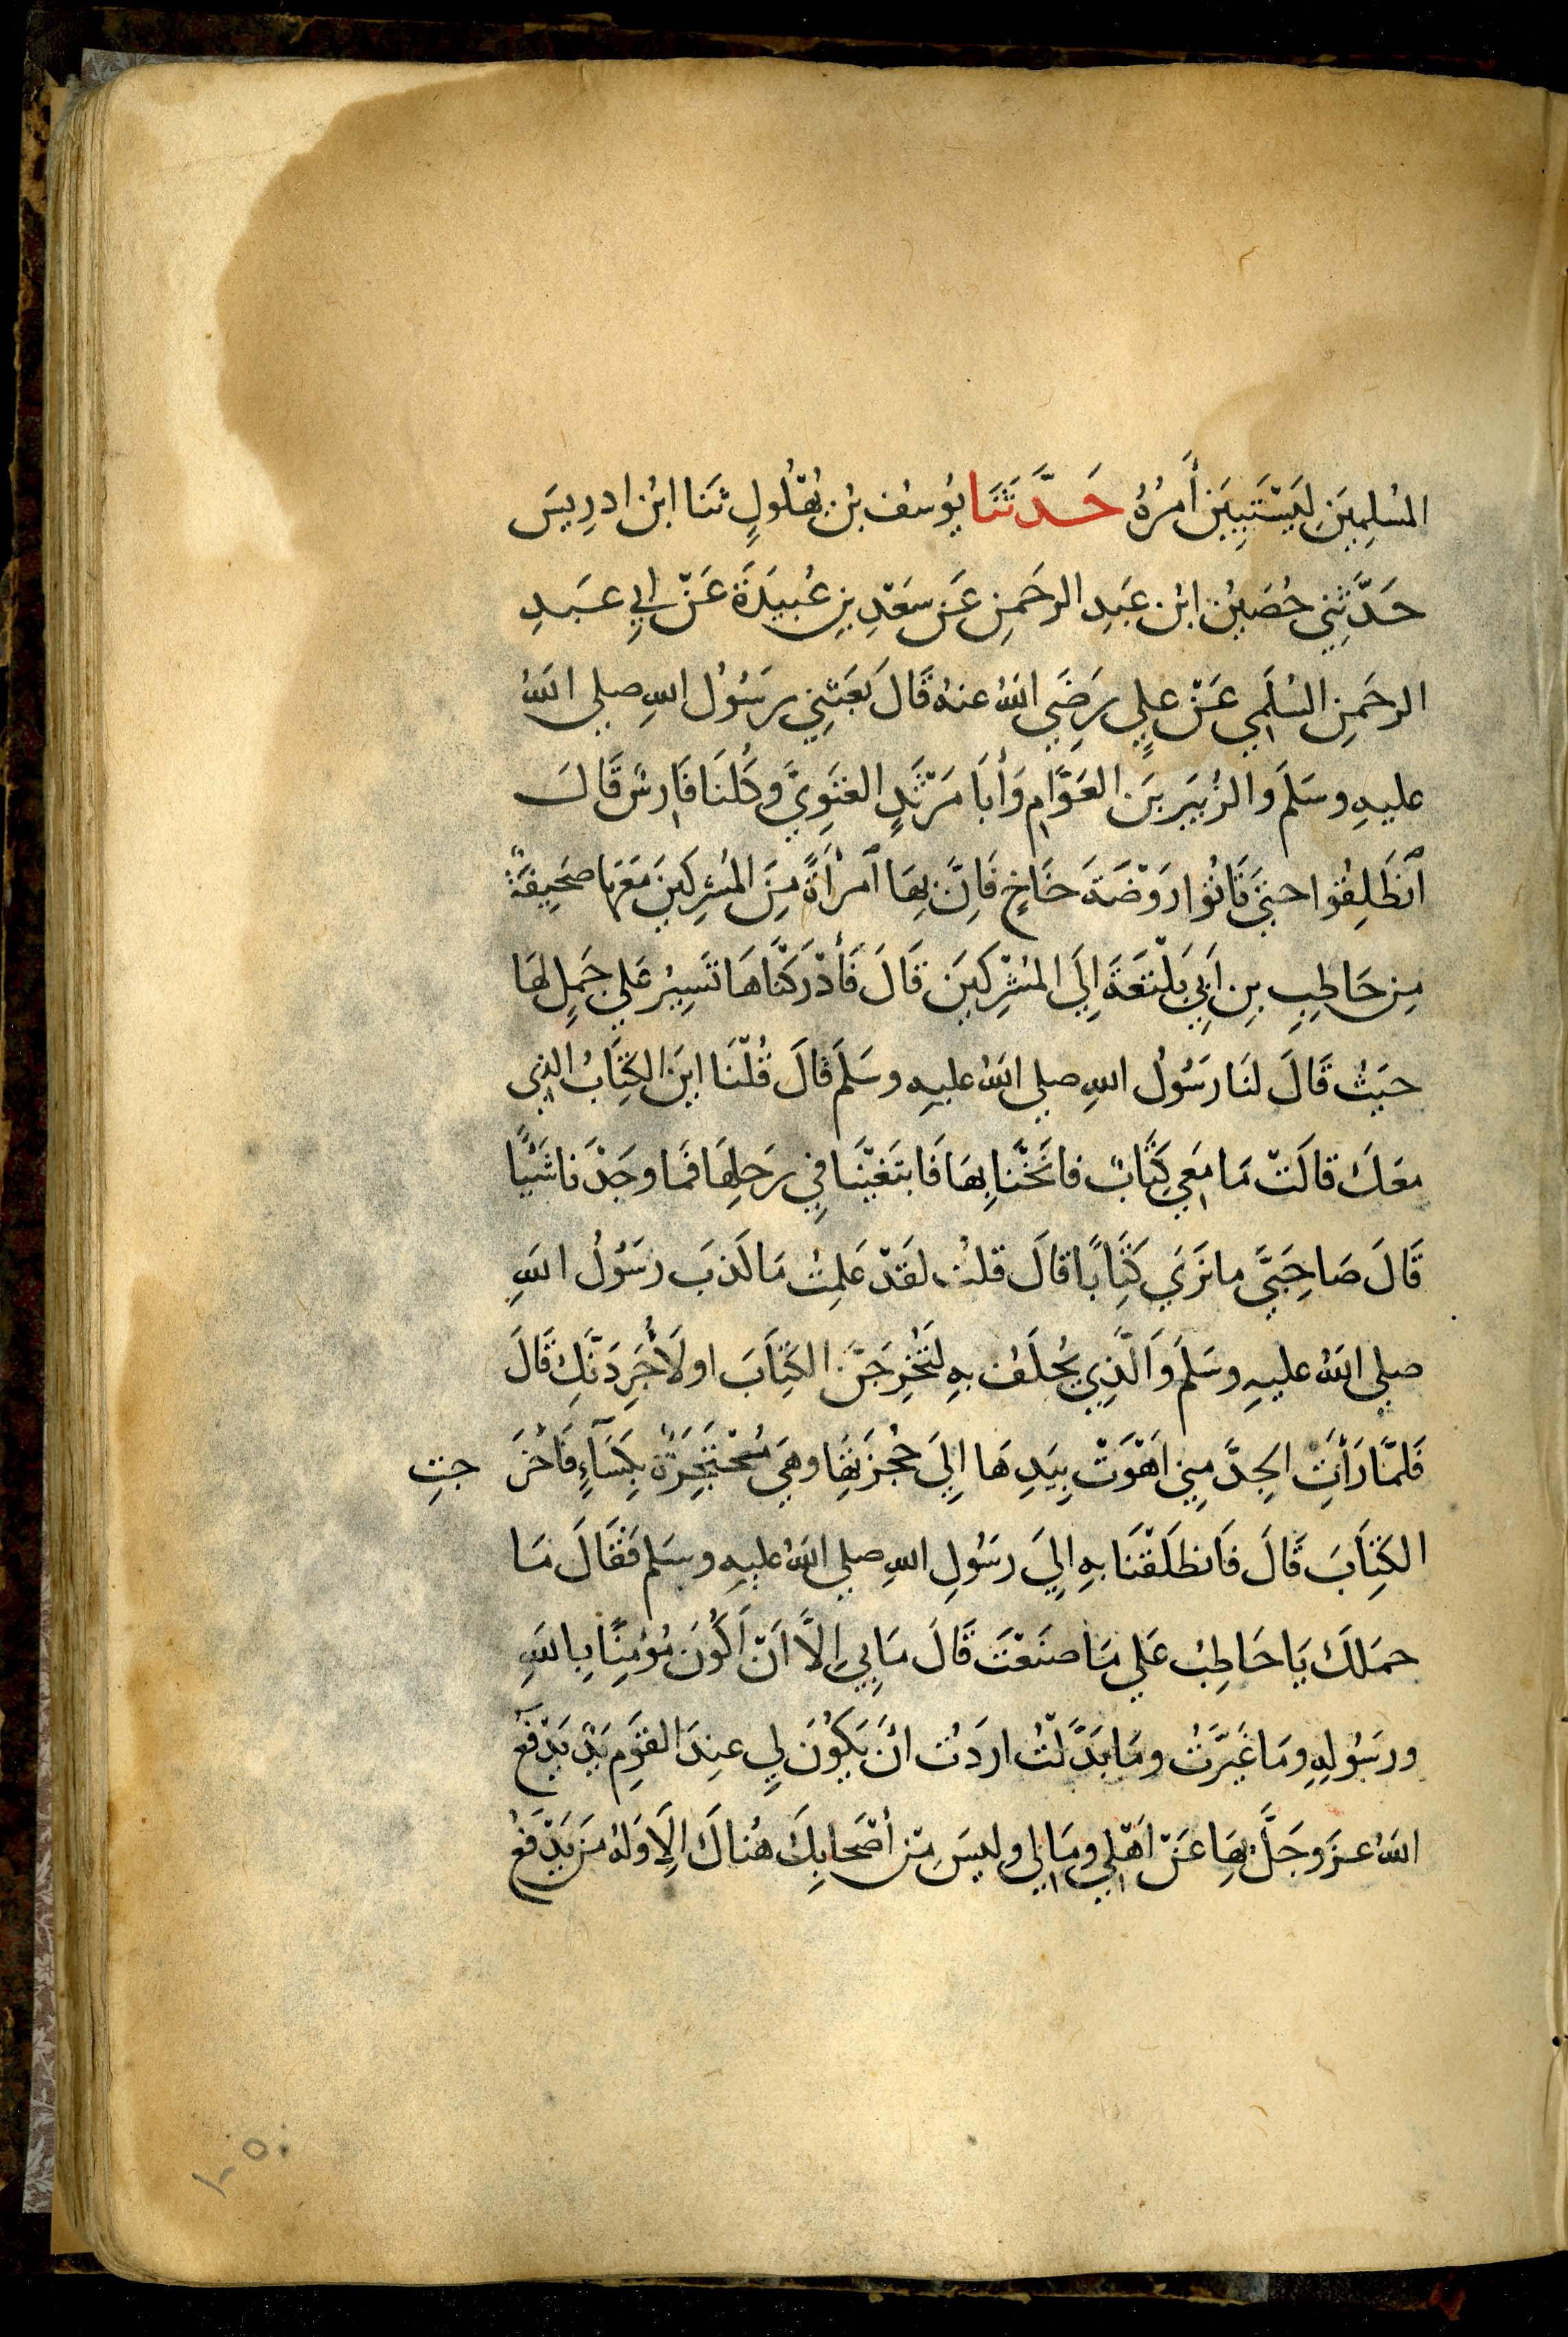 المُسْلِمِينَ لِيَسْتَبِينَ أَمْرُهُ حَدَّثَنَا يُوسُف بنُ بُهْلُولٍ ثنَا ابْن ادرِيسَ
حَدَّثَنِي حُصَيْن ابْن عَبدِ الرحَمنِ عَن سَعْدِ بنِ عُبَيدَةَ عَنْ ابِي عَبدِ
الرحَمنِ السُلَمي عَنْ عليٍ رَضِيَ اللهُ عنهُ قَالَ بَعَثَنِي رسَوُل اللهِ صلي اللهُ
عليهِ وسَلمَ والزُبَيَر بنَ العَوَّامِ وَأبَا مَرْثَدٍ الغَنَوِيَّ وكُلنَا فَارِسٌ قَالَ
ٱنطَلِقُوا حتيَ تَاتُوا رَوْضَةَ خَاخٍ فَاِنَّ بِهَا ٱمرأَةً مِنَ المُشرِكينَ مَعَهَا صَحِيفَةٌ
مِن حَاطِبِ بنِ اَبِي بَلْتَعَةَ اِلَي المُشْرِكينَ قَالَ فَأدْرَكْنَاهَا تَسِيُر عَلي جَملٍ لهَا
حيَثُ قَالَ لنَا رسَوُل اللهِ صلي اللهُ عليهِ وسَلمَ قالَ قُلْنَا اينَ الكِتَابُ الذِي
مَعَك قالَتْ مَا مَعِي كِتَابٌ فانَخْنَا بِهَا فَابتَغَيْنَا فِي رَحلِهَا فَمَا وجَدْنَا شَيْئًا
قَالَ صَاحِبَيَّ مانَرَي كِتَابًا قالَ قلتُ لقَدْ عَلِمتُ مَا كَذبَ رسَوُلُ اللهِ
صلي اللهُ عليهِ وسَلمَ وَالَّذِي يُحلَفُ بهِ لَتُخْرِجَنَّ الكِتَابَ اولَأُجَرِدَنَّكِ قَالَ
فَلمَّا رَأتِ الجِدَّ مِنِي اهْوَتْ بِيَدِهَا اِليَ حُجْزَتِهَا وهيَ مُحْتَجِزَةٌ بِكسَآءٍ فَاخْرَجتِ
الكِتَابَ قَالَ فَانطَلَقْنَا بهِ اِليَ رسَوُلِ اللهِ صلي اللهُ عليهِ وسَلم فَقَالَ مَا
حمَلكَ يَا حَاطِبُ عَلي مَا صنَعْتَ قَالَ مَا بِي اِلَّا اَنْ اَكُونَ مُؤمِنًا بِاللهِ
ورسَوُلِهِ ومَا غَيَّرتُ ومَا بَدَّلْتُ اردَتُ انَ يَكُونَ لِي عنِدَ القَومِ يَدٌ يَدْفَعُ
اللهُ عزَ وجَلَّ بِهَا عَنْ اَهْلِي ومَالِي وليسَ مِنْ أصْحَابِكَ هُنَاكَ اِلَا وَلهُ مَن يَدْفَعُ